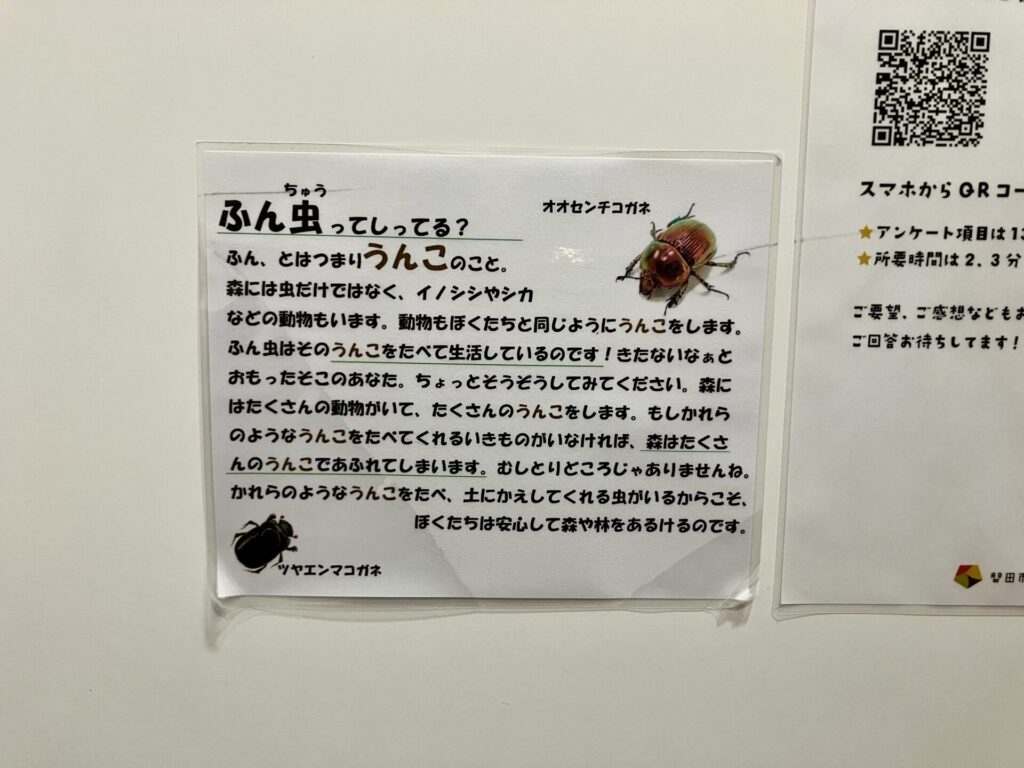 ちゅう
ふん虫ってしってる？
オオセンチコガネ
ふん、とはつまりうんこのこと。
森には虫だけではなく、イノシシやシカ
などの動物もいます。動物もぼくたちと同じようにうんこをします。
ふん虫はそのうんこをたべて生活しているのです！きたないなぁと
おもったそこのあなた。ちょっとそうぞうしてみてください。森に
はたくさんの動物がいて、たくさんのうんこをします。もしかれら
のようなうんこをたべてくれるいきものがいなければ、森はたくさ
んのうんこであふれてしまいます。むしとりどころじゃありませんね。
かれらのようなうんこをたべ、土にかえしてくれる虫がいるからこそ、
ぼくたちは安心して森や林をあるけるのです。
ツヤエンマコガネ
スマホからQRコー
★アンケート項目は13
★所要時間は2、3分
ご要望、ご感想などもお
ご回答お待ちしてます！
磐田市